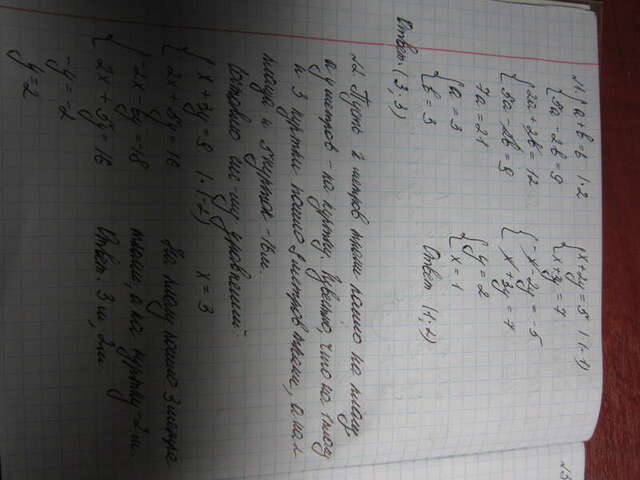 №1. { a + b = 6 | · 2
{ 5a - 2b = 9
{ 2a + 2b = 12
{ 5a - 2b = 9
7a = 21
{ a = 3
{ b = 3
Ответ: (3; 3)
{ x + 2y = 5 | · (-1)
{ x + 3y = 7
{ -x - 2y = -5
{ x + 3y = 7
{ y = 2
{ x = 1
Ответ (1; 2)
№2. Пусть x метров ткани пошло на плащ
а y метров - на куртку. Известно, что на 1 плащ
и 3 куртки пошло 9 метров ткани, а на 2
плаща и 5 курток - 16 м.
Составлю сис-му уравнений.
{ x + 3y = 9 | · (-2)
{ 2x + 5y = 16
{ -2x - 6y = -18
{ 2x + 5y = 16
-y = -2
y = 2
x = 3
На плащ пошло 3 метра
ткани, а на куртку - 2 м.
Ответ: 3 м, 2 м.
№3